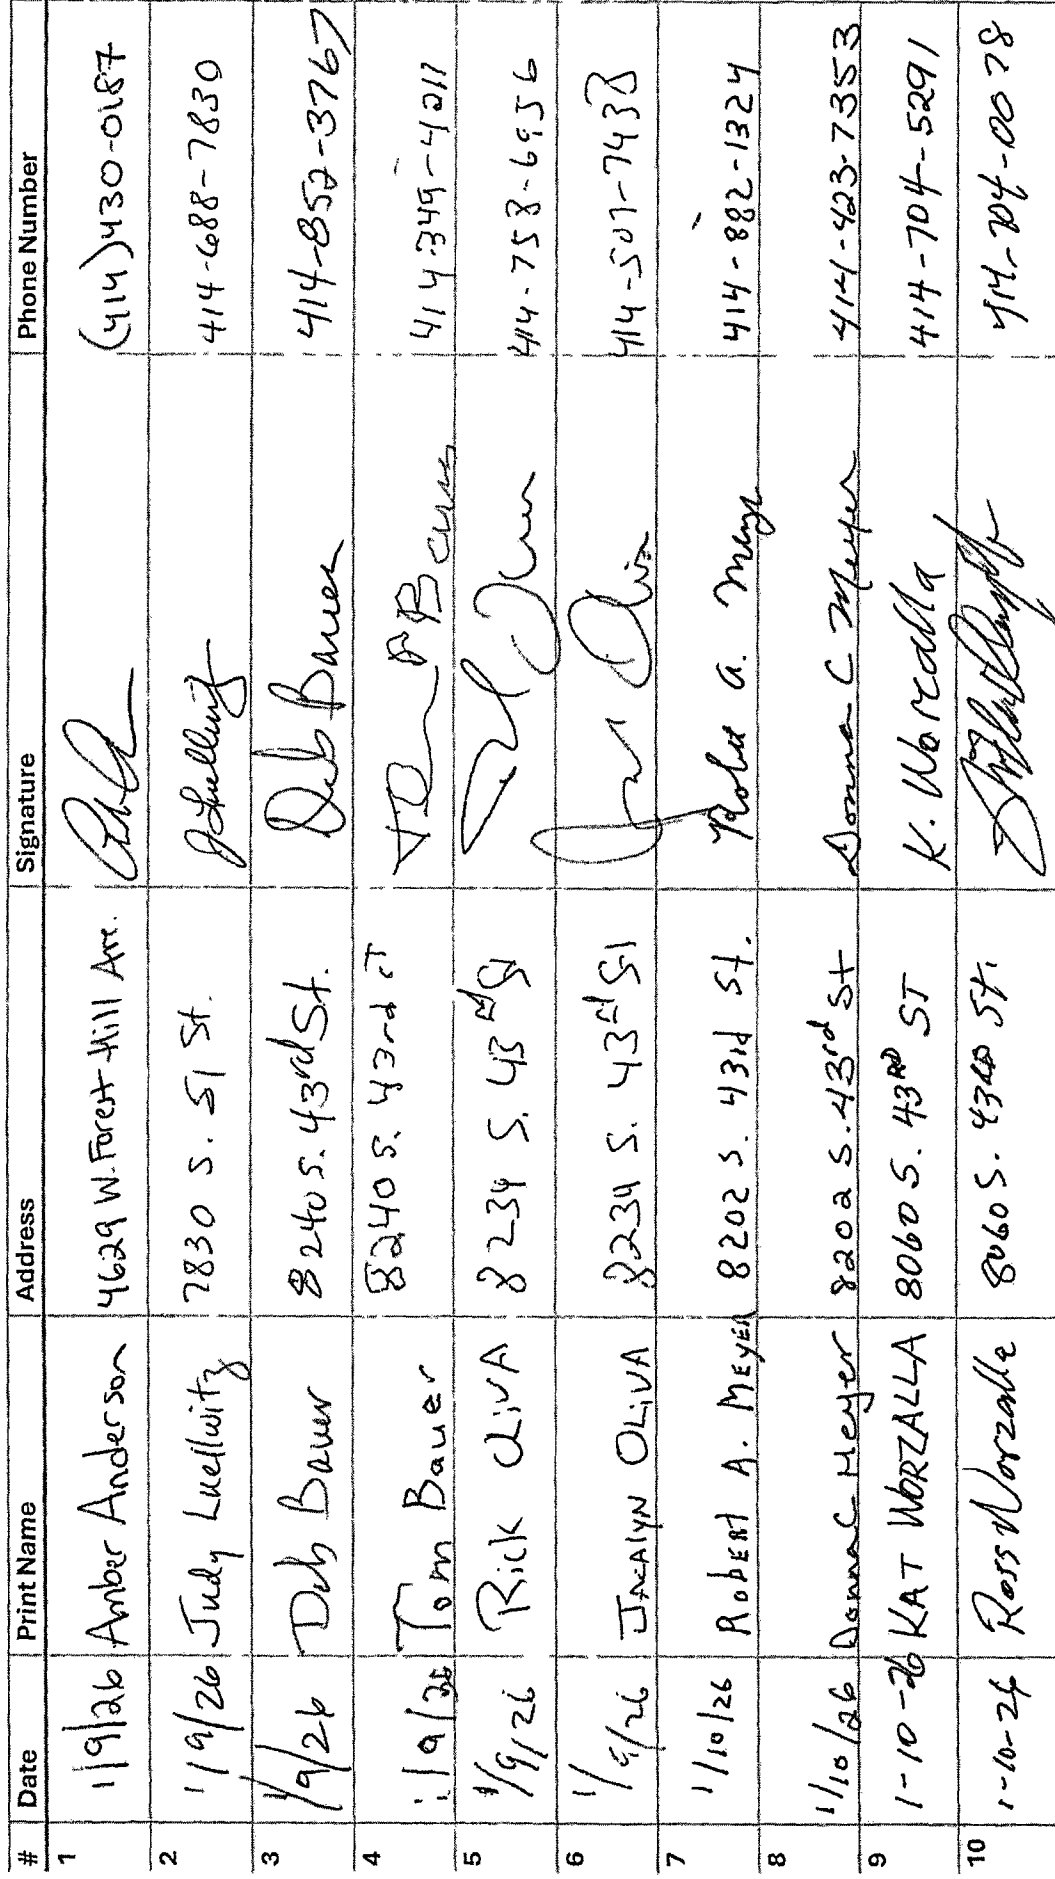 # Date Print Name Address Signature Phone Number
1 1/9/26 Amber Anderson 4629 W. Forest Hill Ave. (414) 430-0187
2 1/9/26 Judy Luellwitz 7830 S. 51 St. J Luellwitz 414-688-7830
3 1/9/26 Deb Bauer 8240 S. 43rd St. Deb Bauer 414-852-3767
4 1/9/26 Tom Bauer 8240 S. 43rd 414-349-4011
5 1/9/26 Rick OlivA 8234 S. 43rd St 414-758-6956
6 1/9/26 JACAlyN OLivA 8234 S. 43rd St 414-507-7438
7 1/10/26 RobERt A. MEyER 8202 S. 43rd St. Robert A. Meyer 414-882-1324
8 1/10/26 Donna C Meyer 8202 S. 43rd St Donna C Meyer 414-423-7353
9 1-10-26 KAT WORZALLA 8060 S. 43RD ST K. Worzalla 414-704-5291
10 1-10-26 Ross Worzalla 8060 S. St. 414-704-0078